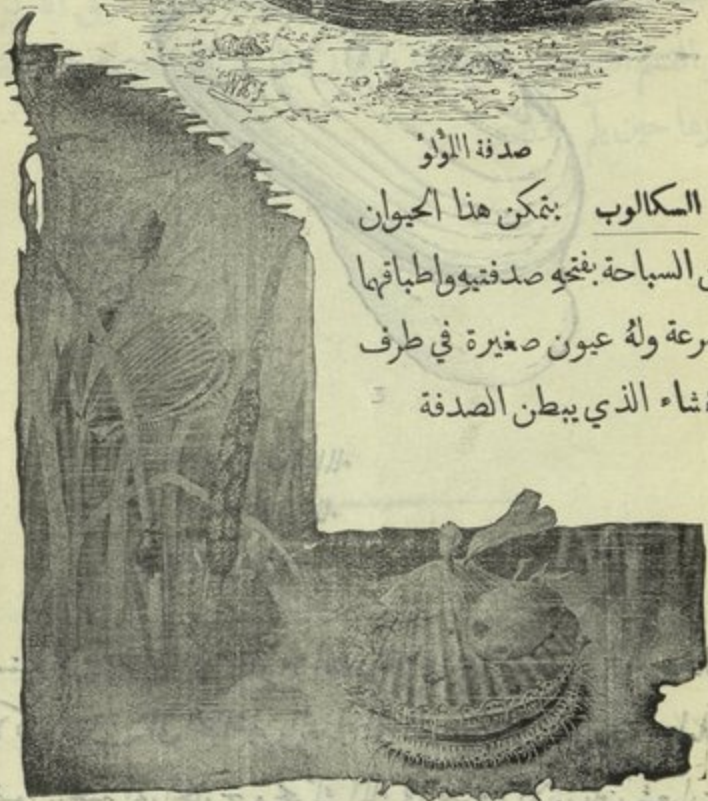 صدفة اللؤلؤ
السكالوب يتمكن هذا الحيوان
السباحة بفتحهِ صدفتيهِ واطباقهما
ولهُ عيون صغيرة في طرف
الذي يبطن الصدفة